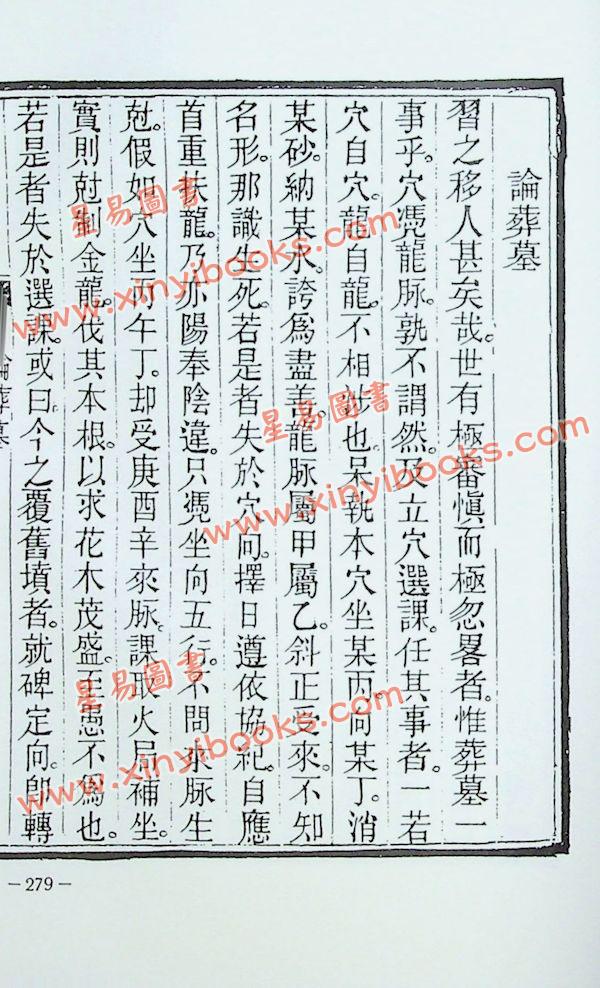 論葬墓
習之移人甚矣哉。世有極審愼而極忽畧者。惟葬墓一
事乎。穴憑龍脉。孰不謂然。及立穴選課。任其事者。一若
穴自穴。龍自龍。不相涉也。呆執本穴坐某丙。向某丁。消
某砂。納某水。誇爲盡善。龍脉屬甲屬乙。斜正受來。不知
名形。那識生死。若是者失於穴向。擇日遵依協紀。自應
首重扶龍。乃亦陽奉陰違。只凴坐向五行。不問來脉生
尅。假如穴坐丙午丁。却受庚酉辛來脉。課取火局補坐。
實則尅制金龍。伐其本根。以求花木茂盛。至愚不爲也。
若是者失於選課。或曰今之覆舊墳者。就碑定向。卽轉
論葬墓
－279－
星易圖書
www.xinyibooks.com
星易圖書
www.xinyibooks.com
星易圖書
www.xinyibooks.com